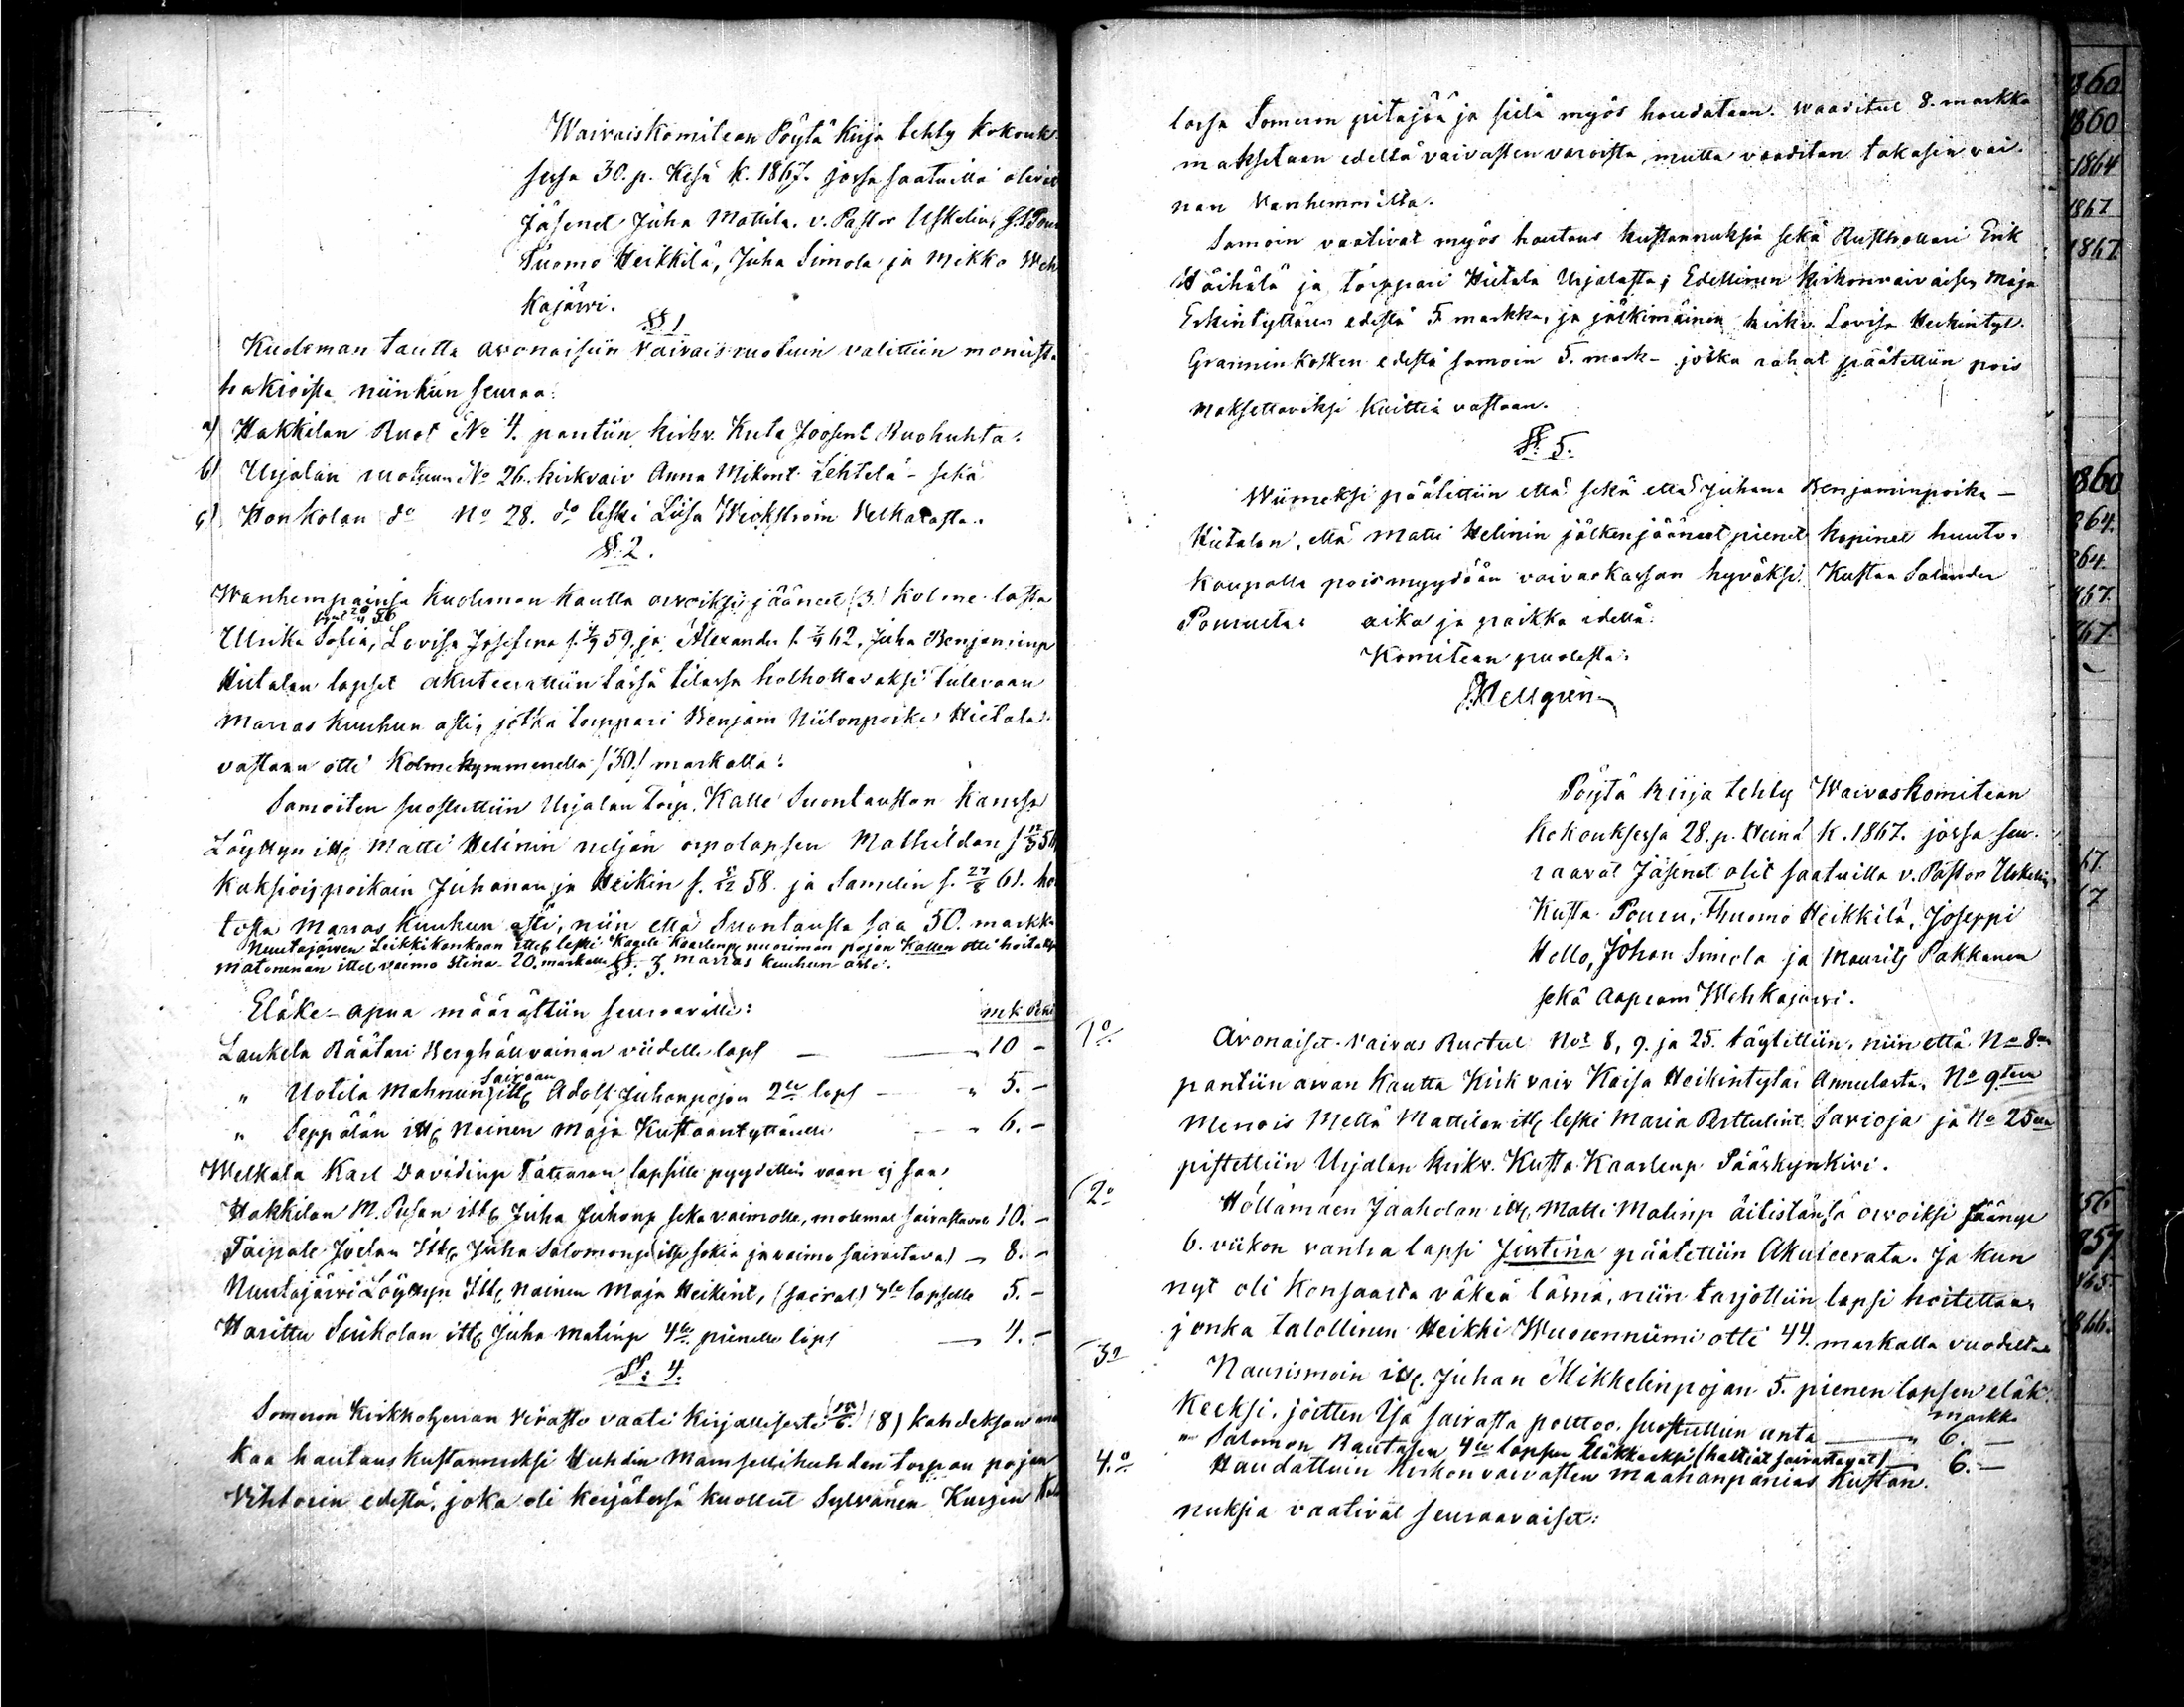 Waivaiskomitean Pöytä Kirja tehty kokouk-
sessa 30. p. Kesä k. 1867. jossa saatuilla olivat
Jäsenet Juha Mattila. v. Pastor Uskelin,
Tuomo Heikkilä, Juha Simola ja Mikko Weh
kajärwi.
§§ 1
Kuoleman tautta avonaisiin Vaivaisruotuin valittiin monista
hakioista niinkun seuraa:
a) Hakkilan Ruot No 4. pantiin kirkv. Kusta Joosent Ruohuhta:
b) Urjalan ruotuun No 26. kirkvaiv Anna Mikont Lehtelä - sekä
c) Honkolan do No 28. do leski Liisa Wickström Welkalasta.
§§ 2.
Wanhempainsa kuoleman kautta orvoiksi jääneet (3) kolme lasta
Ulrika Sofia, Lovisa Josefina f. 59. ja Alexander f. 62, Juha Benjaminp
Hietalan lapset akuteerattiin tässä tilassa holhottavaksi tulevaan
Marras kuuhun asti, jotka torppari Benjam Niilonpoika Hietala
vastaan otti Kolmekymmenellä (30) markalla:
Samoiten suostuttiin Urjalan torp. Kalle Suontaustan kanssa
Löyttyn itll Matti Helinin neljän orpolapsen Mathildan
kaksoispoikain Juhanan ja Heikin f. 58. ja Samelin f. 27/8 61. ho
tosta Marras kuuhun asti, niin että Suontausta saa 50. markka
Nuutajärven Leikkikankaan itll leski Kaarlenp nuoriman pojan Kallen otti hoitaa
Matomänän ittel vaimo Stina 20. markalla §§. 3. marras kuuhun asti.
Eläke-apua määrättiin seuraaville: mk
Laukela Räätäri Berghällvainan viidelle laps — 10 -
" Uotila Mahnun sairaan itll Adolf Juhanpojan 2lle laps — " 5. -
" Seppälän itll Nainen Maja Kustaantyttärelle - 6. -
Welkala Karl Davidinp Tattaran lapsille pyydettiin vaan ej saa
Hakkilan M. Pesan itll Juha Juhonp seka vaimolle, molemat sairastavat 10. -
Taipale Joelan Itll Juha Salomonp (itse sokia ja vaimo sairastava) — 8. -
Nuutajärvi Löyttyn Itll nainen Maja Heikint, (sairas) lapselle 5. -
Harittu Suikolan itll Juha Matinp 4lle pienelle laps — 4. -
§§: 4.
Someron Kirkkoherran virasto vaati kirjallisesti (8) kahdeksan
kaa hautaus kustannuksi Huhdin Mamsellihuhden torpan pojan
Vihtorin edestä, joka oli kerjätessä kuollut Sylvänen Kurjen
lassa Someron pitäjää ja siilä myös haudataan. Waaditut 8. markka
maksetaan edellä vaivasten varoista mutta vaaditan takasin vai-
nan Vanhemmilta.
Samoin vaativat myös hautaus kustannuksia sekä Rusthollari Erik
Häihälä ja torppari Hietala Urjalasta; Edellinen kirkonvaivaisen Maja
Erkintyttären edestä 5 markka, ja jälkimäinen kirkv. Lovisa Heikintyt.
Granninkosken edestä samoin 5. mark- jotka rahat päätettiin pois
maksettaviksi Kuittia vastaan.
§§: 5.
Wiimeksi päätettiin että sekä että Juhana Benjaminpoika —
Hietalan, että Matti Helinin jälkenjääneet pienet kapinet huuto-
kaupalla pois myydään vaivaskassan hyväksi. Kustaa Salander
Pomulta: aika ja paikka edellä:
Komitean puolesta:
Hellgrén
Pöytä kirja tehty Waivaskomitean
kokouksessa 28. p. Heinä K. 1867. jossa seu-
raavat Jäsenet olit saatuilla v. Pastor Uskelin,
Kusta Pouru, Thuomo Heikkilä, Joseppi
Hello, Johan Simola ja Maurits Pakkanen
sekä Aapram Wehkajärvi.
1o Avonaiset Vaivas Ruotut Not 8, 9. ja 25. täytettiin, niin että No 8an
pantiin arvan kautta Kirkvaiv Kaisa Heikintytär Annulasta. No 9ten
Menois Mellä Mattilan itll leski Maria Perttulint Savioja ja No 25een
pistettiin Urjalan kirkv. Kusta Kaarlenp Pääskynkivi.
2o Höllämäen Jaaholan itll Matti Matinp äitistänsä orvoiksi jäänyt
6. viikon vanha lapsi Justina päätettiin Akuteerata. Ja kun
nyt oli Konsaasta väkeä läsnä, niin tarjottiin lapsi hoitettaa
jonka talollinen Heikki Wuorenniemi otti 44. markalla vuodelta
3o Naurismoin itll. Juhan Mikkelinpojan 5. pienen lapsen eläk-
keeksi, joitten Isä sairasta polttoo, suostuttiin anta — markka " 6. —
" Salomon Rautasen 4lle lapsen Eläkkeeksi (haltiat sairastavat) — 6. —
4.o Haudattuin Kirkonvaivasten maahanpanias kustan-
nuksia vaativat seuraavaiset:
1860
1860
1864
1867
1867
1860
864.
64.
867.
867.
67
7
857
865
866.